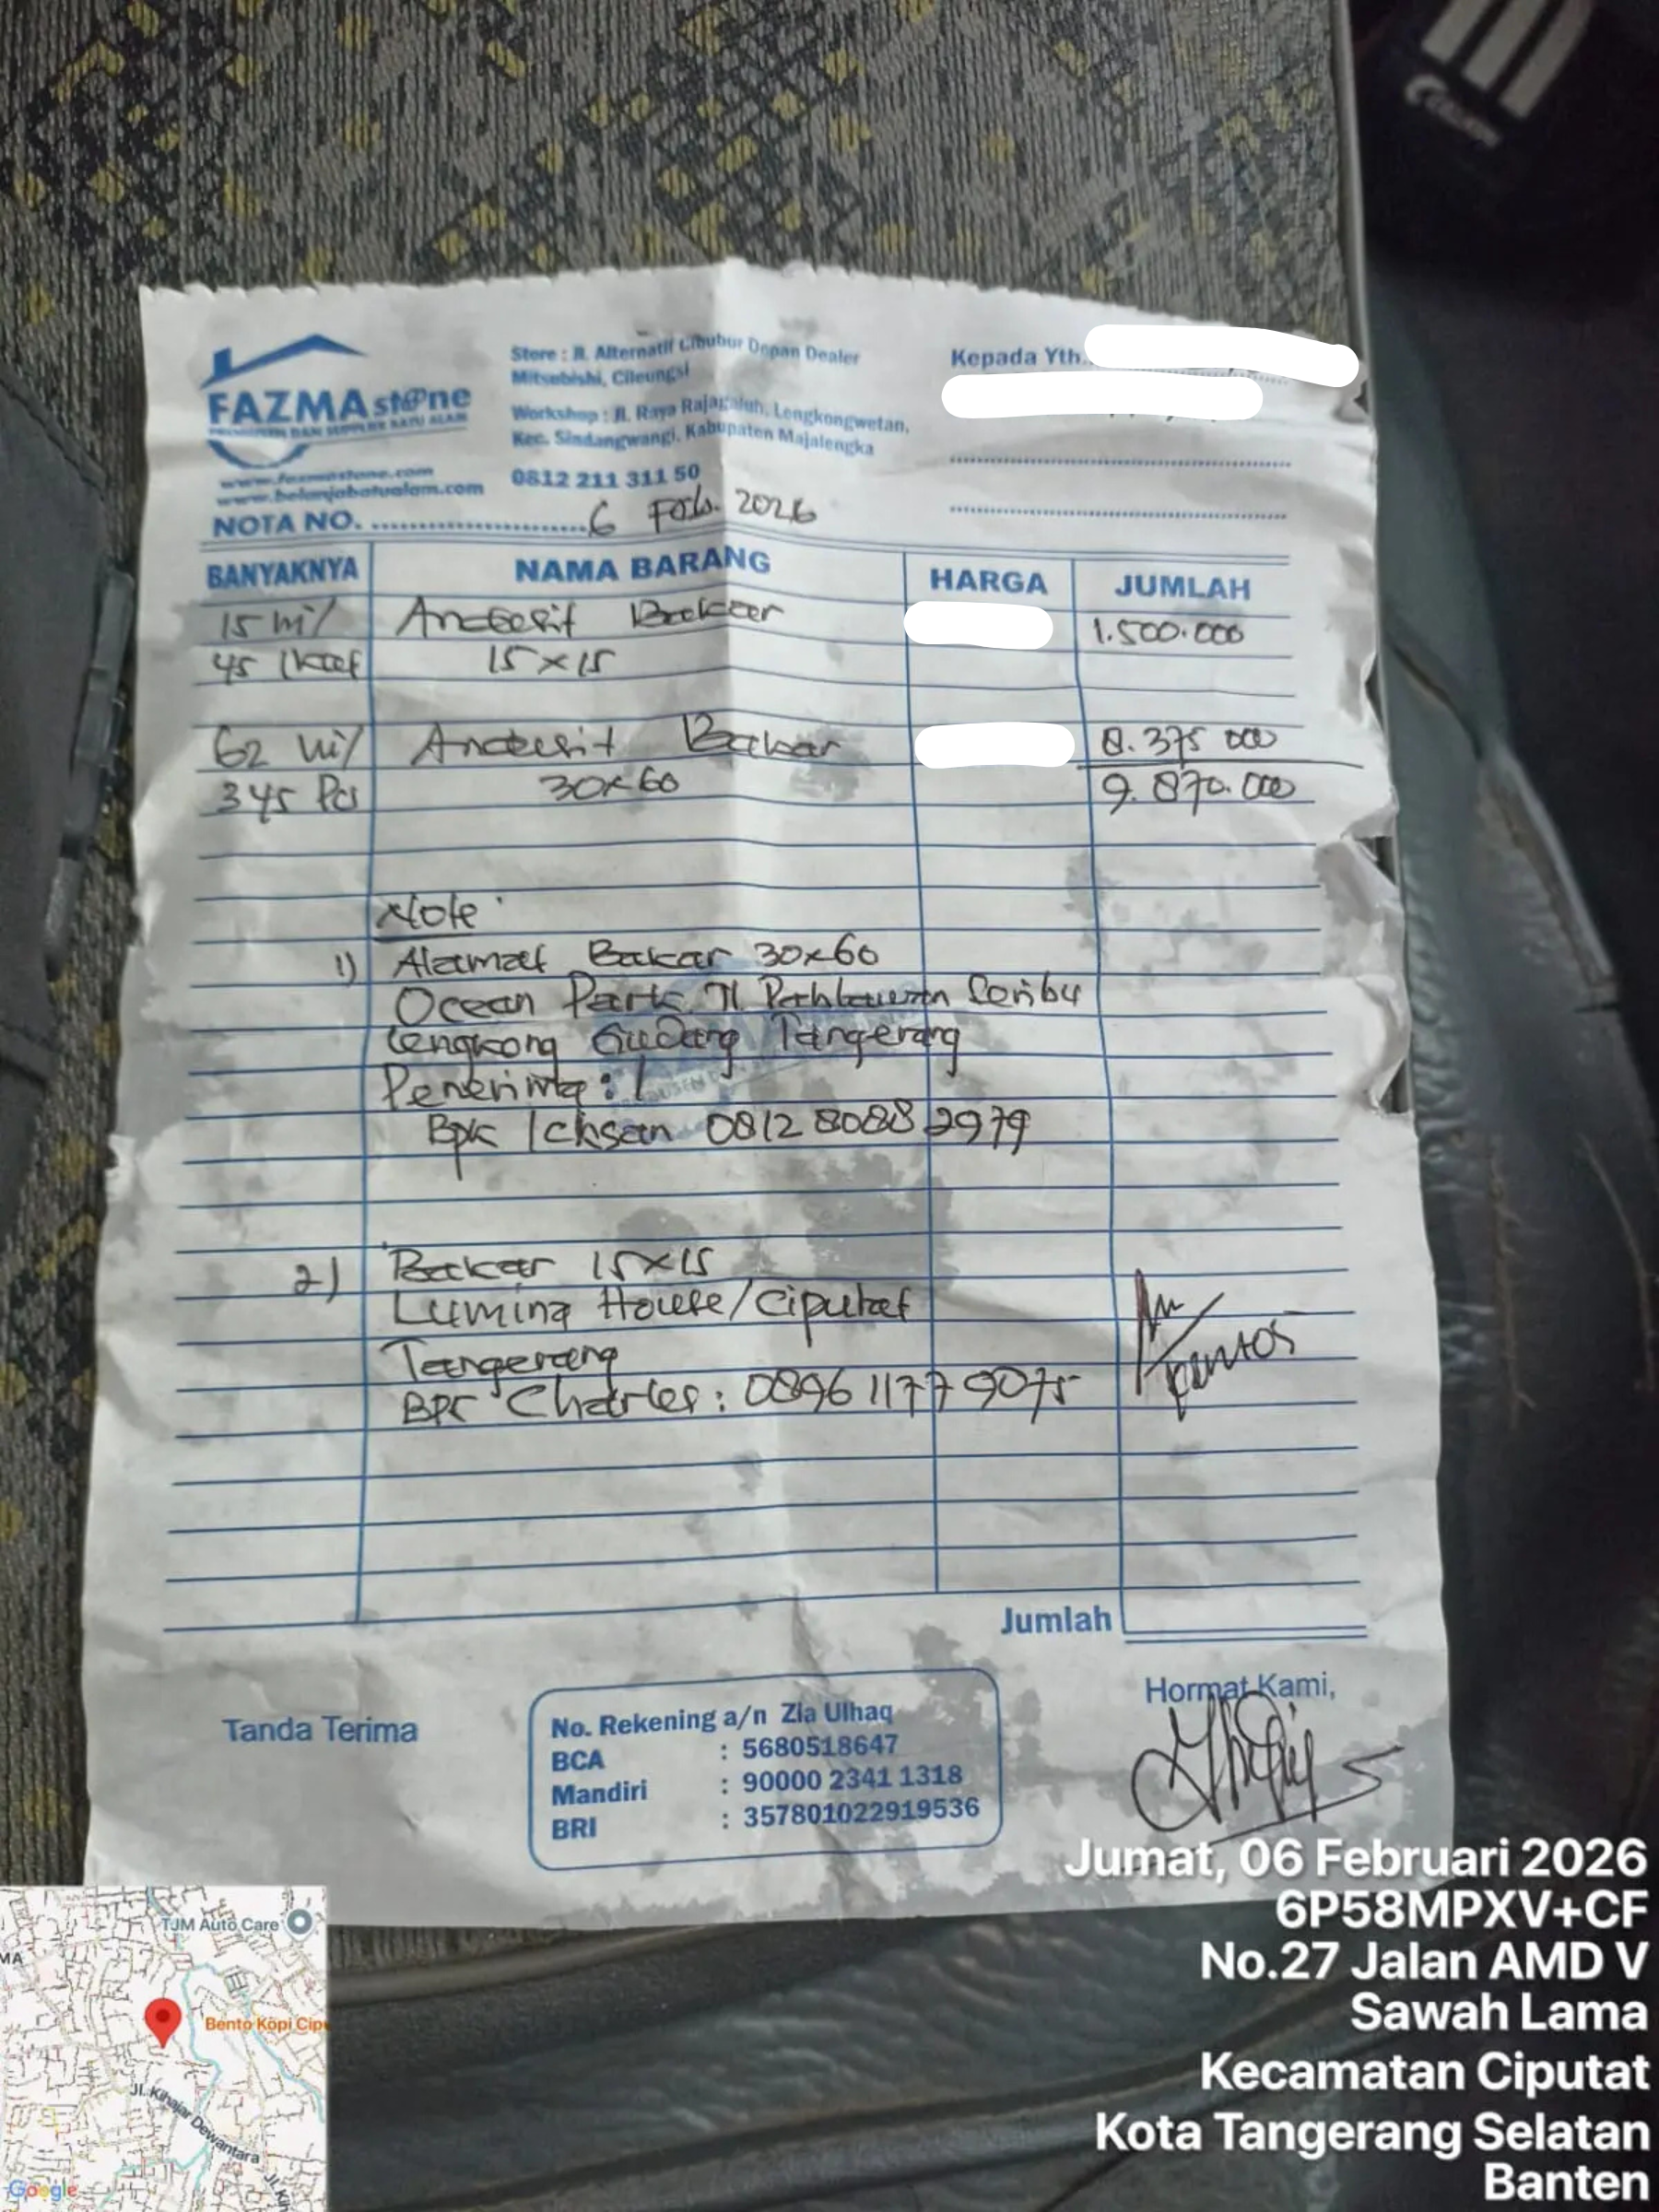 FAZMAstone
PRODUSEN DAN SUPPLIER BATU ALAM
www.fazmastone.com
www.belanjabatualam.com
Store : Jl. Alternatif Cibubur Depan Dealer
Mitsubishi, Cileungsi
Workshop : Jl. Raya Rajagaluh, Lengkongwetan,
Kec. Sindangwangi, Kabupaten Majalengka
0812 211 311 50
Kepada Yth.
NOTA NO. 6 Feb. 2026
BANYAKNYA NAMA BARANG HARGA JUMLAH
15 m²/ Andesit Bakar 1.500.000
45 15x15
62 m²/ Andesit Bakar 8.375 000
345 Pcs 30x60 9.870.000
Note
1) Alamat Bakar 30x60
Ocean Park Jl Pahlawan Seribu
Lengkong Gudang Tangerang
Penerima :
Bpk Ichsan 0812 8088 2979
2) Bakar 15x15
Lumina House/Ciputat
Tangerang
BPK Charles : 0896 1177 9075
Jumlah
Tanda Terima
No. Rekening a/n Zia Ulhaq
BCA : 5680518647
Mandiri : 90000 2341 1318
BRI : 357801022919536
Hormat Kami,
Jumat, 06 Februari 2026
6P58MPXV+CF
No.27 Jalan AMD V
Sawah Lama
Kecamatan Ciputat
Kota Tangerang Selatan
Banten
TJM Auto Care
MA
Bento Kopi Cipu
Jl. Kihajar Dewantara
Jl. Kih
Google